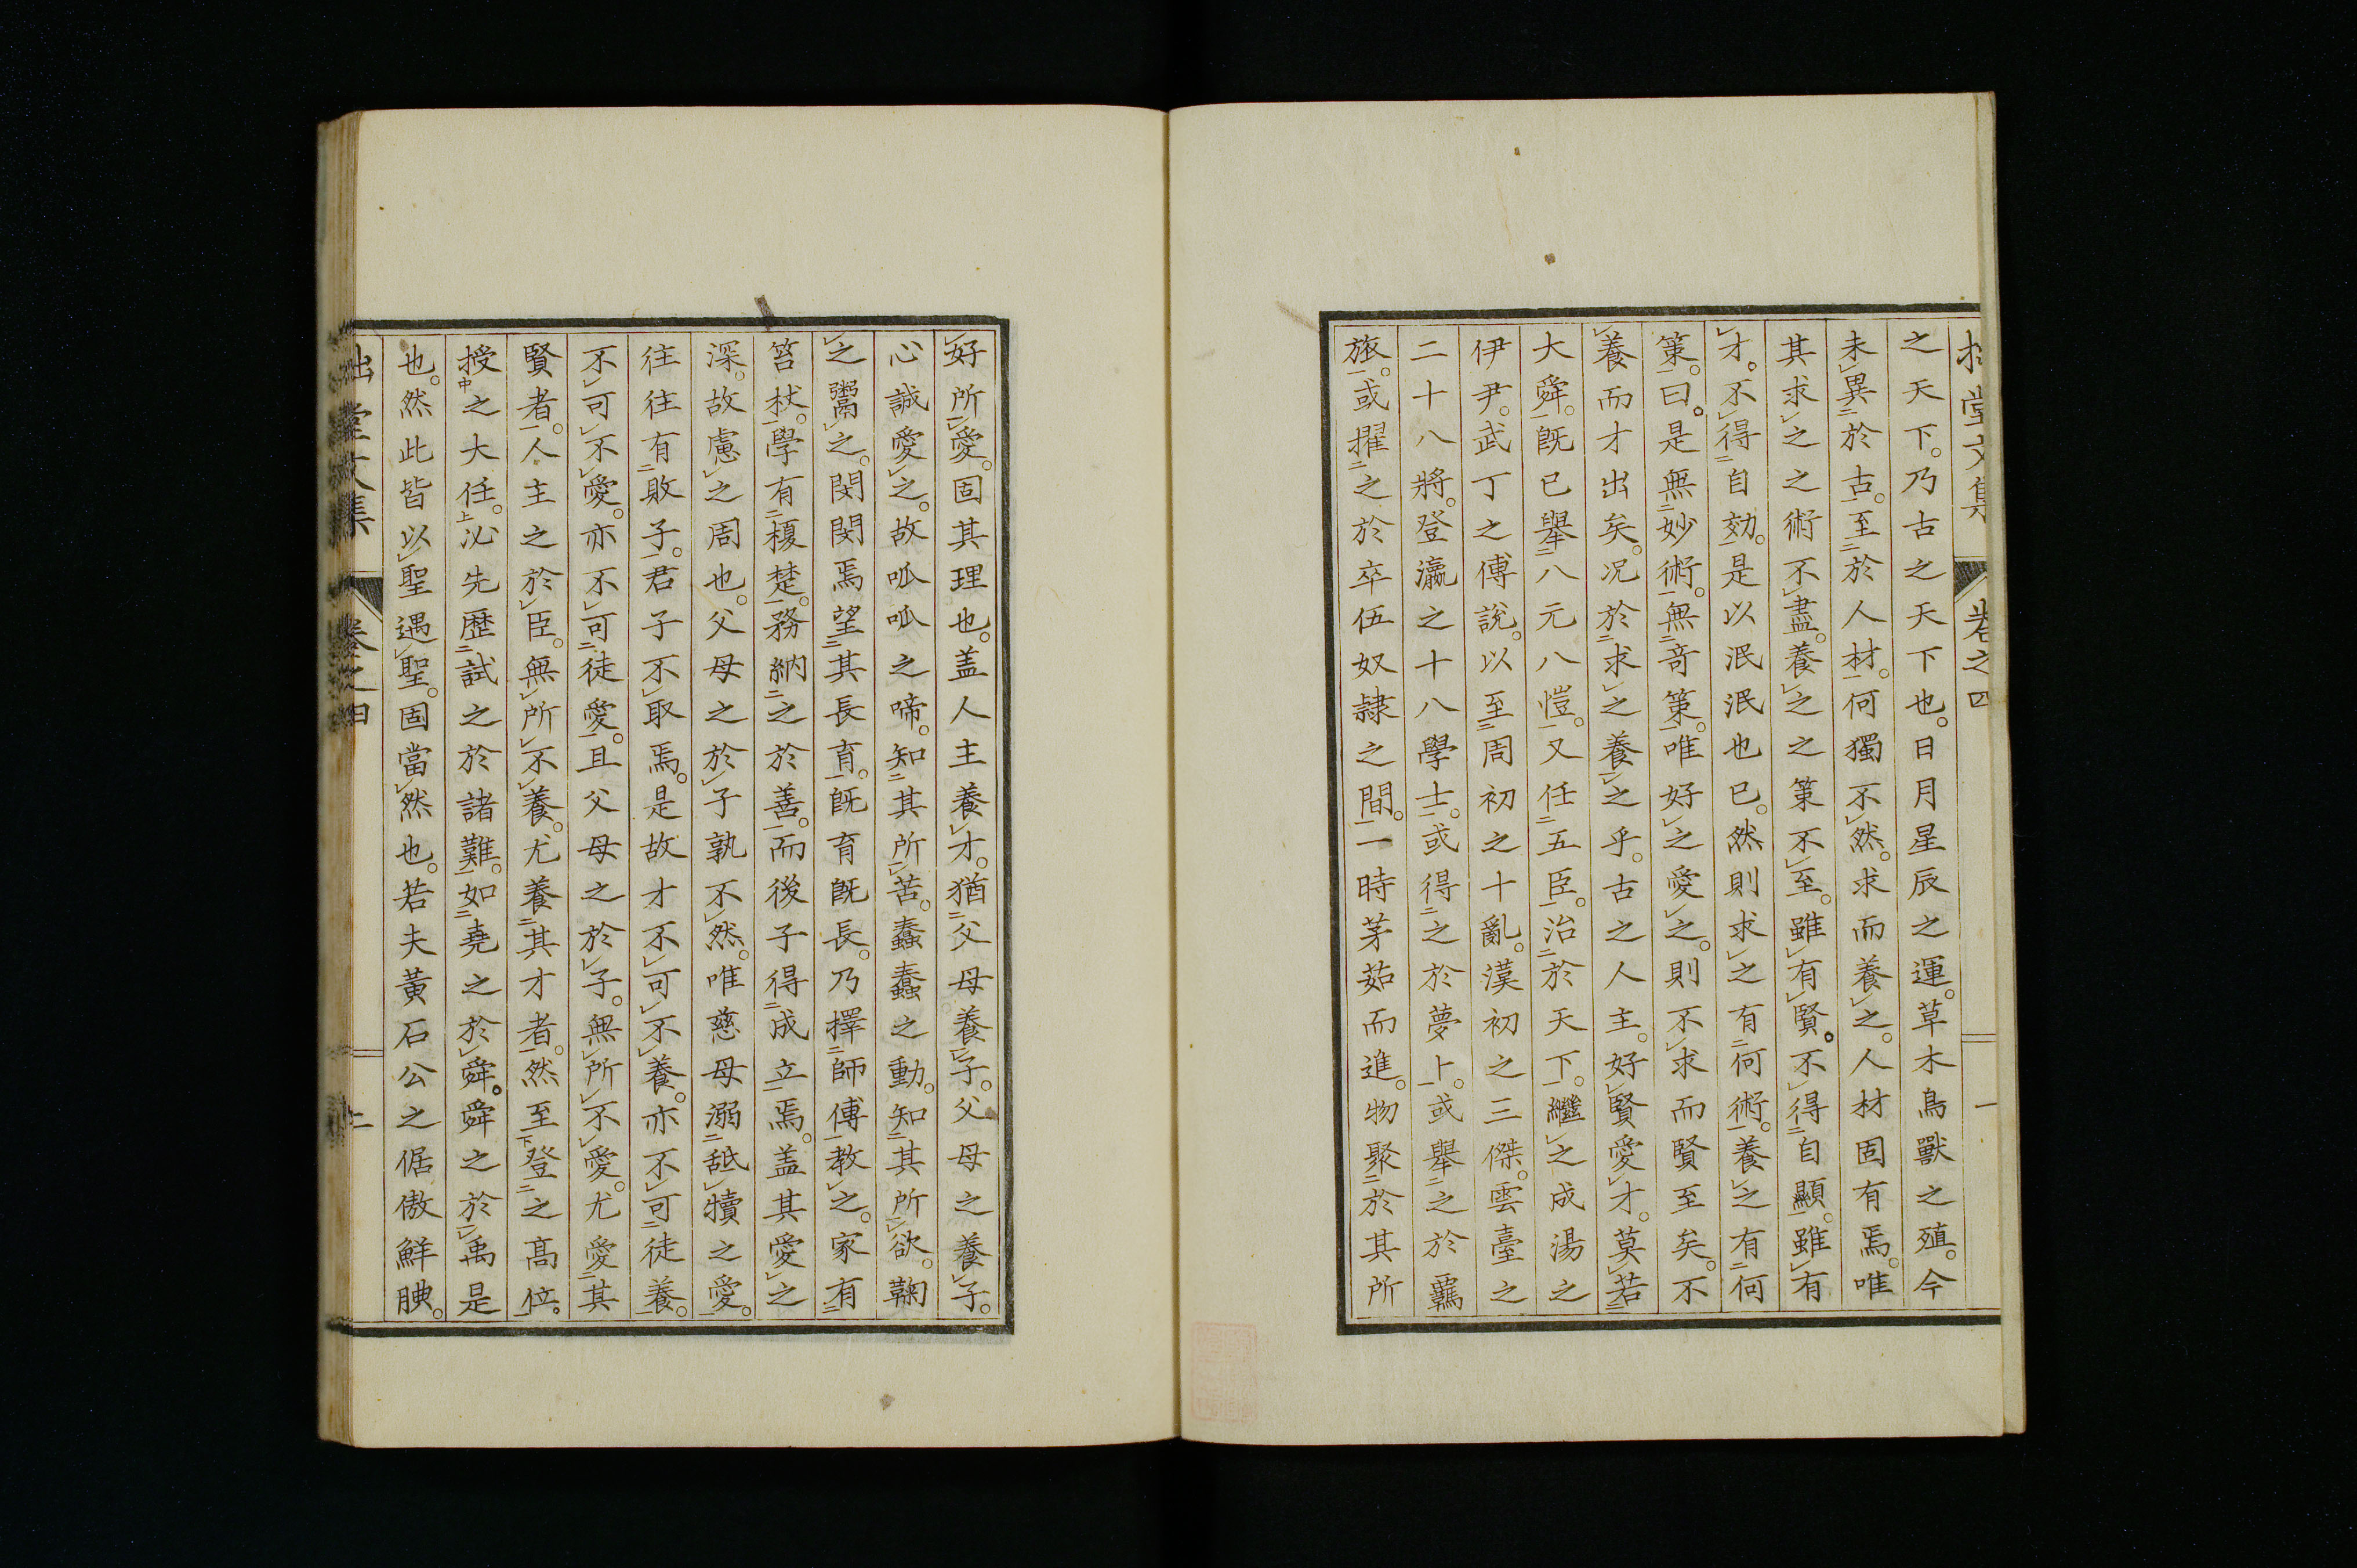 拙堂文集 卷之四 一
之天下。乃古之天下也。日月星辰之運。草木鳥獸之殖。今
未㆑異㆓於古㆒。至㆓於人材㆒。何獨不㆑然。求而養㆑之。人材固有焉。唯
其求㆑之之術不㆑盡。養㆑之之策不㆑至。雖㆑有㆑賢。不㆑得㆓自顯㆒。雖㆑有
㆑才。不㆑得㆓自効㆒。是以泯泯也已。然則求㆑之有㆓何術㆒。養㆑之有㆓何
策㆒。曰。是無㆓妙術㆒。無㆓奇策㆒。唯好㆑之愛㆑之。則不㆑求而賢至矣。不
㆑養而才出矣。况於㆓求㆑之養㆒㆑之乎。古之人主。好㆑賢愛㆑才。莫㆑若㆓
大舜㆒。既已舉㆓八元八愷㆒。又任㆓五臣㆒。治㆓於天下㆒。繼㆑之成湯之
伊尹。武丁之傅說。以至㆓周初之十亂。漢初之三傑。雲臺之
二十八將。登瀛之十八學士㆒。或得㆓之於夢卜㆒。或舉㆓之於羈
旅㆒。或擢㆓之於卒伍奴隸之間㆒。一時茅茹而進。物聚㆓於其所
㆑好所㆒㆑愛。固其理也。盖人主養㆑才。猶㆓父母養㆒㆑子。父母之養㆑子。
心誠愛㆑之。故呱呱之啼。知㆓其所㆒㆑苦。蠢蠢之動。知㆓其所㆒㆑欲。鞠
㆑之鬻㆑之。閔閔焉望㆓其長育㆒。既育既長。乃擇㆓師傅㆒教㆑之。家有㆓
笞杖㆒。學有㆓榎楚㆒。務納㆓之於善㆒。而後子得㆓成立㆒焉。盖其愛㆑之
深。故慮㆑之周也。父母之於㆑子孰不㆑然。唯慈母溺㆓舐㆑犢之愛㆒。
往往有㆓敗子㆒。君子不㆑取焉。是故才不㆑可㆑不㆑養。亦不㆑可㆓徒養㆒。
不㆑可㆑不㆑愛。亦不㆑可㆓徒愛㆒。且父母之於㆑子。無㆑所㆑不㆑愛。尤愛㆓其
賢者㆒。人主之於㆑臣。無㆑所㆑不㆑養。尤養㆓其才者㆒。然至㆘登㆓之高位㆒。
授㆗之大任㆖。必先歷㆓試之於諸難㆒。如㆓堯之於㆑舜。舜之於㆒㆑禹是
也。然此皆以㆑聖遇㆑聖。固當㆑然也。若夫黃石公之倨傲鮮腆。
拙堂文集 卷之四